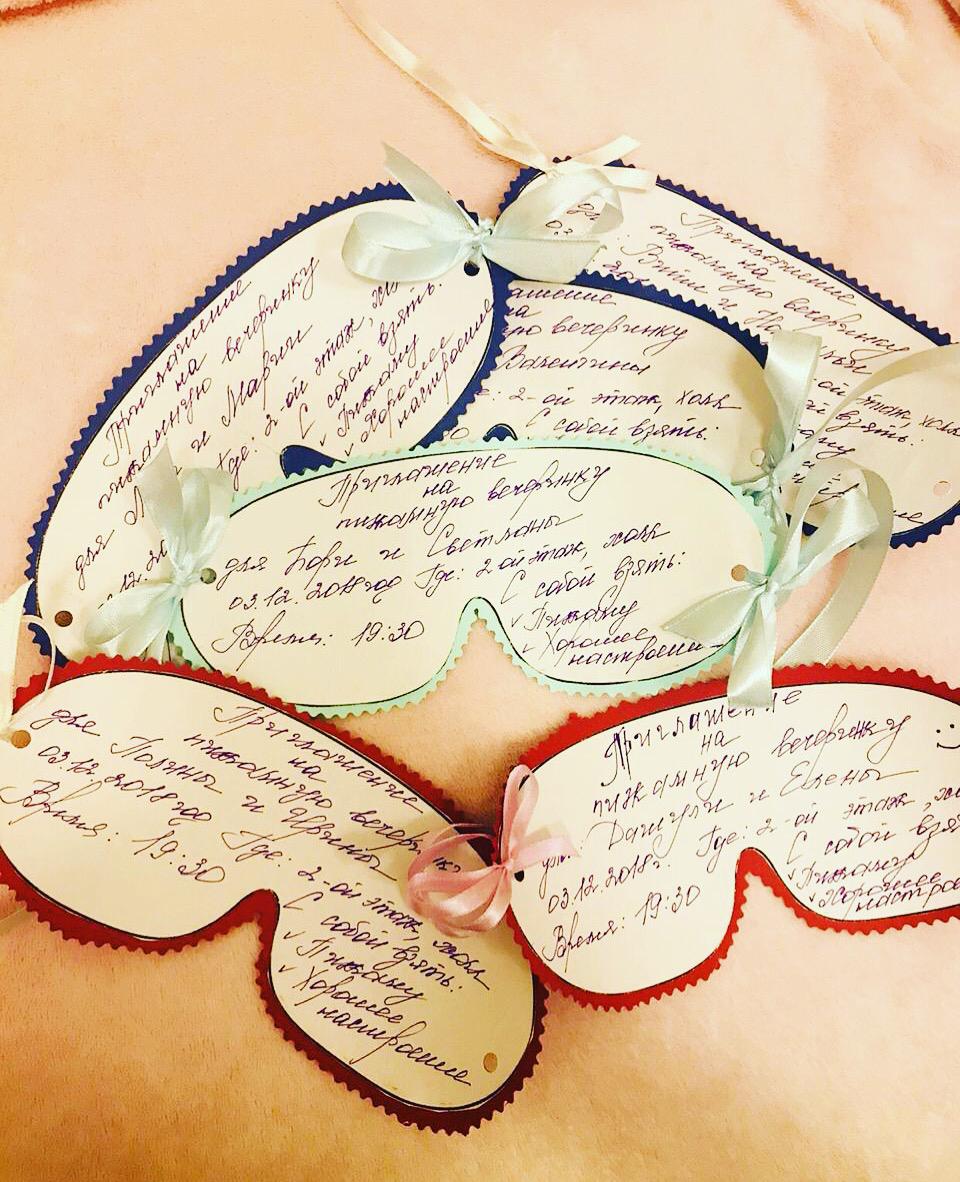 Приглашение
на
пижамную вечеринку
для
и Марии
Где: 2-ой этаж,
С собой взять:
✓ Пижаму
✓ Хорошее
настроение
Приглашение
на
пижамную вечеринку
Вити и
С собой взять:
вечеринку
Валентины
2-ой этаж, холл
С собой взять:
Приглашение
на
пижамную вечеринку
для Бори и Светланы
03.12.2018год Где: 2-ой этаж, холл
Время: 19:30
С собой взять:
✓ Пижаму
✓ Хорошее
настроени-
Приглашение
на
пижамную вечеринку
для Полины и Ирины
03.12.2018год Где: 2-ой этаж, холл
Время: 19:30
С собой взять:
✓ Пижаму
✓ Хорошее
настроение
Приглашение
на
пижамную вечеринку
для Данули и Елены
03.12.2018г. Где: 2-ой этаж,
Время: 19:30
С собой взя
✓ Пижаму
✓ Хорошее
настрое